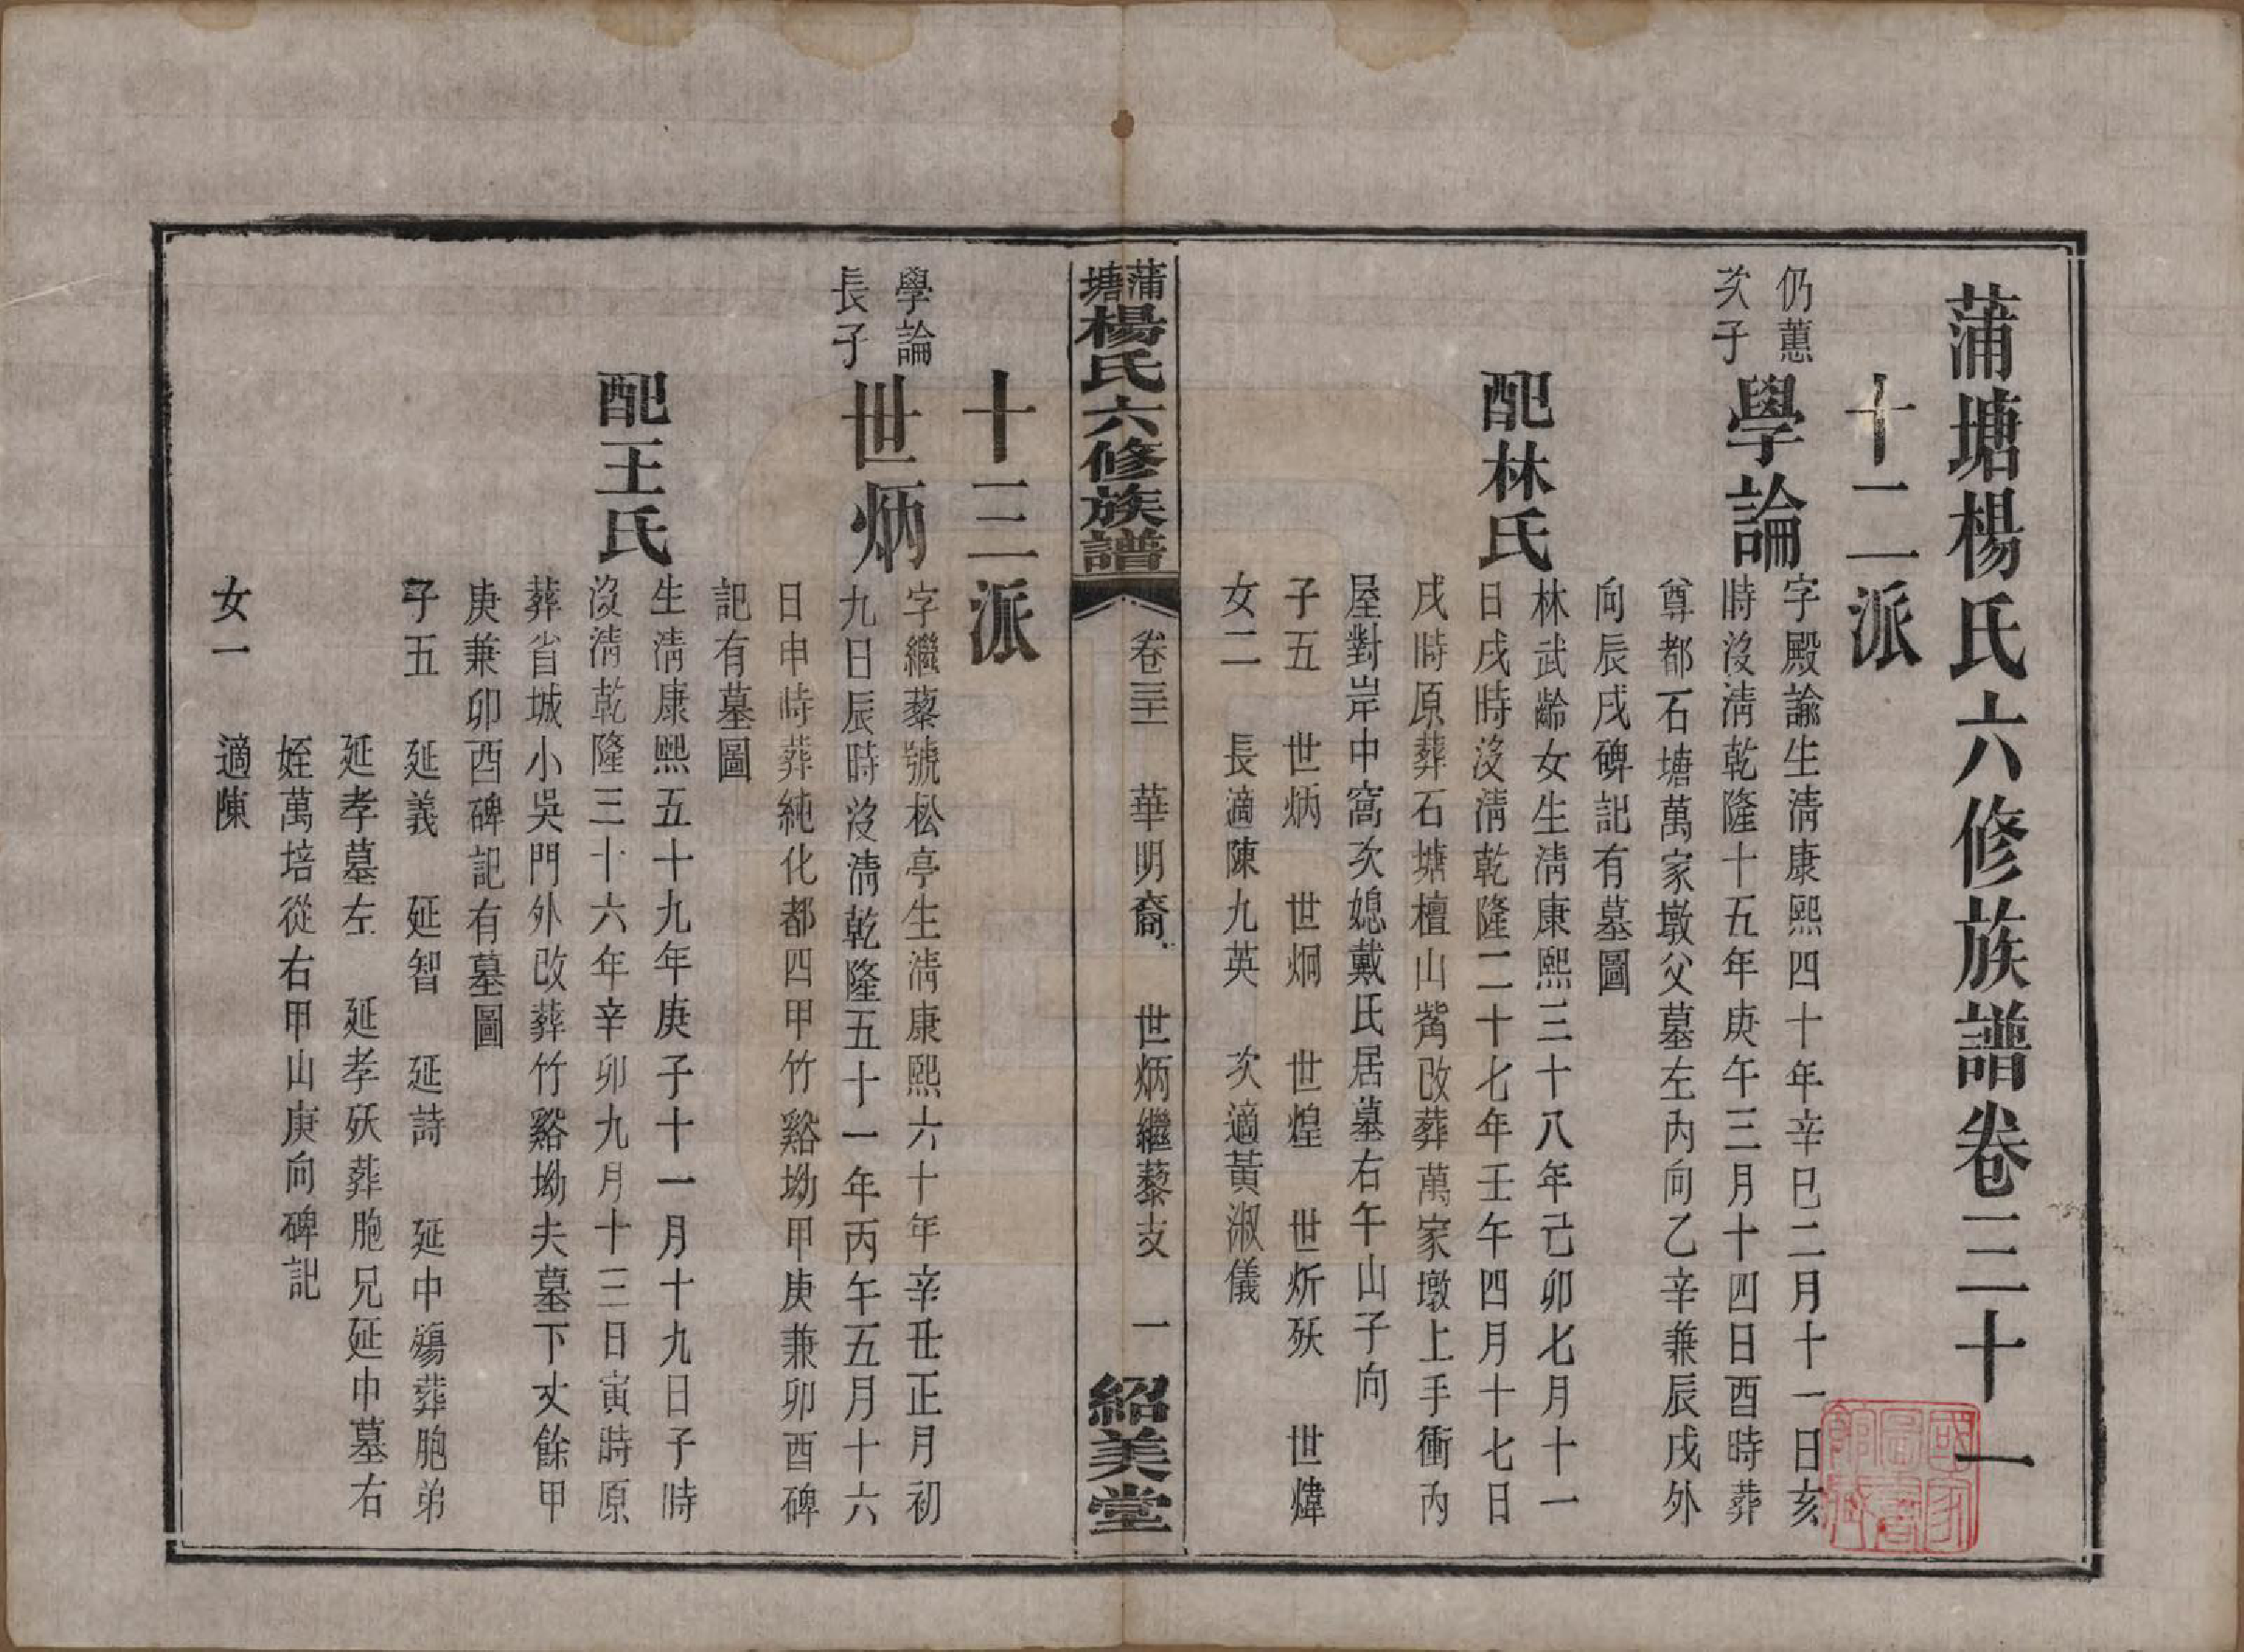 蒲塘楊氏六修族譜卷三十一
十二派
仍蕙
次子
學論
字殿諭生淸康熙四十年辛巳二月十一日亥
時沒淸乾隆十五年庚午三月十四日酉時葬
尊都石塘萬家墩父墓左內向乙辛兼辰戌外
向辰戌碑記有墓圖
配林氏
林武齡女生淸康熙三十八年己卯七月十一
日戌時沒淸乾隆二十七年壬午四月十七日
戌時原葬石塘檀山觜改葬萬家墩上手衝內
屋對岸中窩次媳戴氏居墓右午山子向
子五 世炳 世炯 世煌 世炘殀 世煒
女二 長適陳九英 次適黃淑儀
蒲塘楊氏六修族譜 卷三十一 華明裔 世炳繼藜支 一 紹美堂
十三派
學論
長子
世炳
字繼藜號松亭生淸康熙六十年辛丑正月初
九日辰時沒淸乾隆五十一年丙午五月十六
日申時葬純化都四甲竹谿坳甲庚兼卯酉碑
記有墓圖
配王氏
生淸康熙五十九年庚子十一月十九日子時
沒淸乾隆三十六年辛卯九月十三日寅時原
葬省城小吳門外改葬竹谿坳夫墓下丈餘甲
庚兼卯酉碑記有墓圖
子五 延義 延智 延詩 延中殤葬胞弟
延孝墓左 延孝殀葬胞兄延中墓右
姪萬培從右甲山庚向碑記
女一 適陳
國家圖書館藏